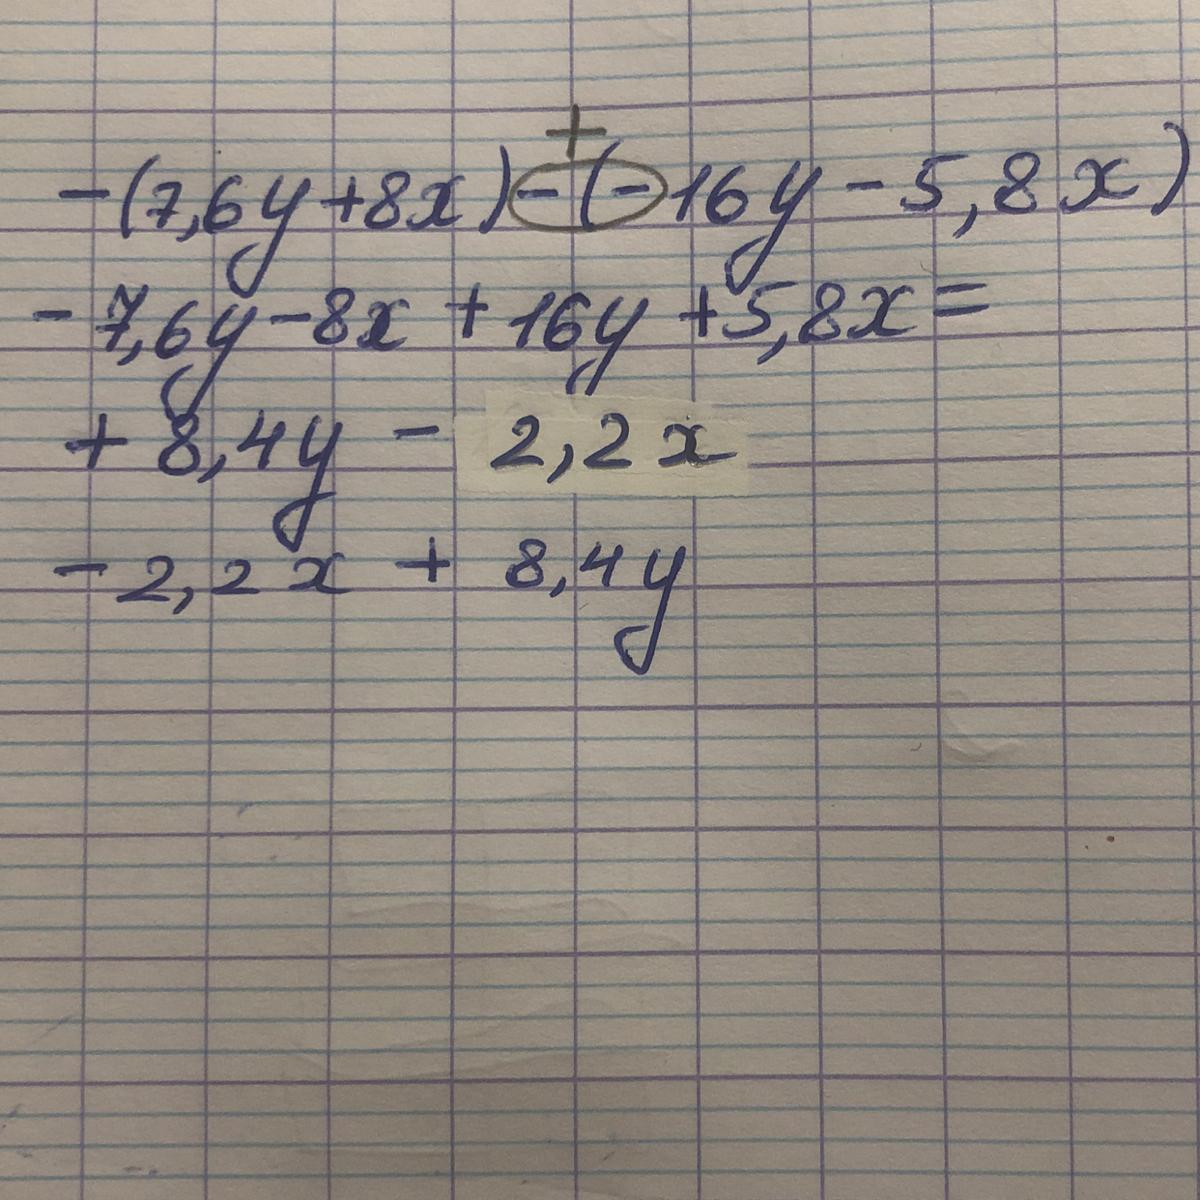 +
-(7,6y+8x)-(-16y-5,8x)
-7,6y-8x+16y+5,8x=
+8,4y-2,2x
-2,2x+8,4y